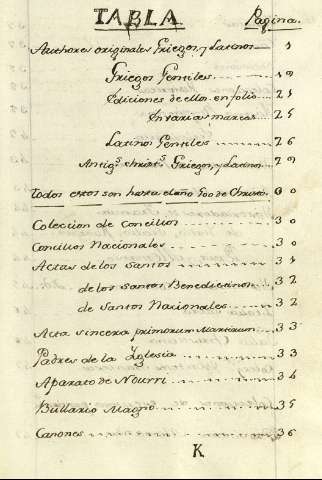 TABLA Pagina.
Authores originales Griegos, y Latinos 1
Griegos Gentiles 19
Ediciones de ellos en folio 21
En varias marcas 25
Latinos Gentiles 26
Antigs. christs. Griegos, y Latinos 29
todos estos son hasta el año 600 de Christo 00
Coleccion de Concilios 30
Concilios Nacionales 30
Actas de los Santos 31
de los santos Benedictinos 32
de Santos Nacionales 32
Acta sincera primorum Martirum 33
Padres de la Yglesia 33
Aparato de Nourri 34
Bullario Magno 35
Canones 36
K